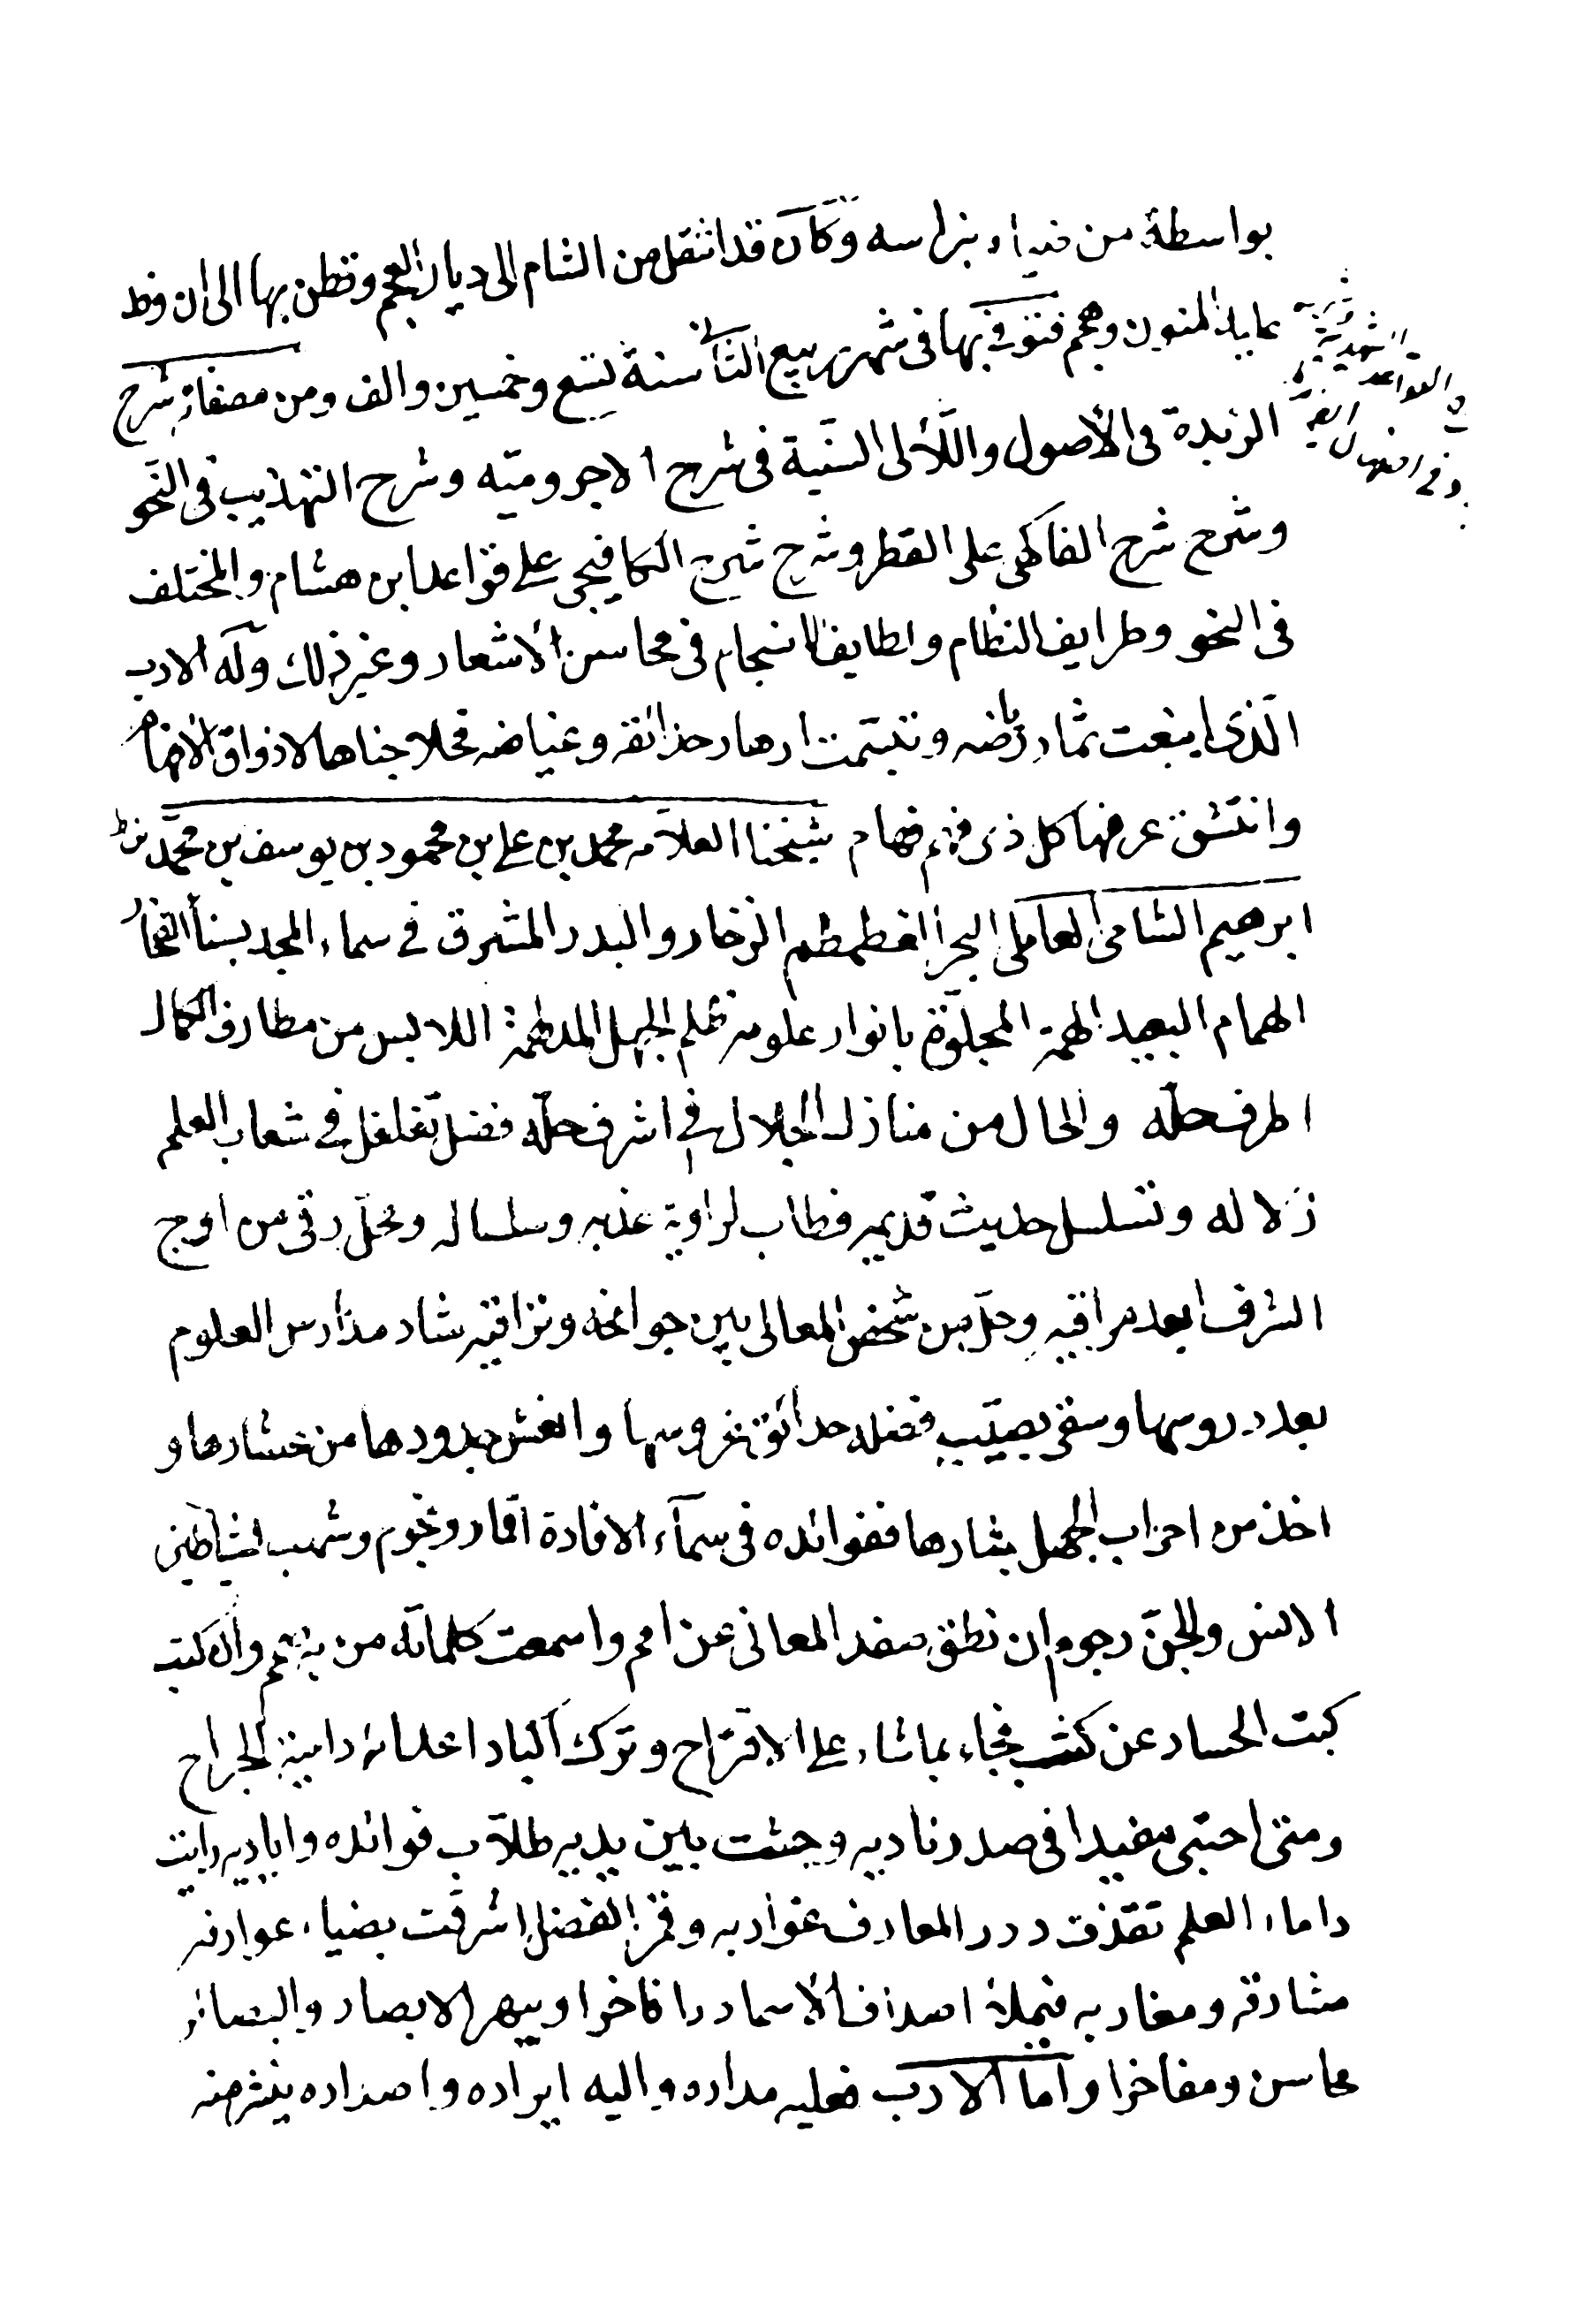 بواسطة من ضياء نبراسه وكان قد انتقل من الشام الى ديار العجم وقطن بها الى ان وفد
عليه المنون وهجم فتوفي بها في شهر ربيع الثاني سنة تسع وخمسين والف ومن مصنفاته شرح
الزبدة في الأصول واللآلى السنية في شرح الاجروميه وشرح التهذيب في النحو
وشرح شرح الفاكهى على القطر وشرح شرح الكافيجي على قواعد ابن هشام والمختلف
في النحو وطرايف النظام ولطايف الانسجام في محاسن الأشعار وغير ذلك وله الادب
الذى اينعت ثمار رياضه وتبسمت ازهار حدائقه وغياضه فحلا جناها لاذواق الافهام
وانتشق عرفها كل ذى فهم فهام شيخنا العلامه محمد بن علي بن محمود بن يوسف بن محمد بن
ابرهيم الشامى العاملى البحر الغطمطم الزخار والبدر المشرق في سماء المجد بسناء الفخار
الهمام البعيد الهمة المجلوة بانوار علومه ظلم الجهل المدلهمة اللابس من مطارف الكمال
اطرف حله والحال من منازل الجلال في اشرف حله فضل تغلغل في شعاب العلم
زلاله وتسلسل حديث قديمه فطاب لراويه عذبه وسلساله ومحل رقى من اوج
الشرف ابعد مراقيه وحل من شخص المعالى بين جوانحه وتراقيه شاد مدارس العلوم
بعد دروسها وسقى بصيب فضله حدائق غروسها وانعش جدودها من عثارها و
اخذ من احزاب الجهل بثارها ففوائده في سماء الافادة اقمار ونجوم وشهب لشياطين
الانس والجن رجوم ان نطق صفد المعانى عن امم واسمعت كلماته من به صمم وان كتب
كبت الحساد عن كثب فجاء بما شاء على الاقتراح وترك اكباد اعدائه دامية الجراح
ومتى احتبى مفيدا في صدر ناديه وجثت بين يديه طلاب فوائده واياديه رايت
داماء العلم تقذف درر المعارف غواربه وقمر الفضل اشرقت بضياء عوارفه
مشارقه ومغاربه فيملأ اصداف الأسماع درا فاخرا ويبهر الابصار والبصائر
محاسن ومفاخرا واما الادب فعليه مداره واليه ايراده واصداره ينثر منه
في القواعد الشهيدية